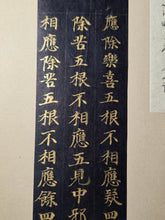 應除樂喜五根不相應疑四
除苦五根不相應五見中邪
相應除苦五根不相應餘四